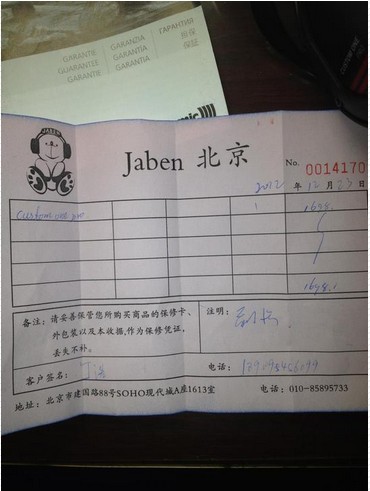 ГАРАНТИЯ
GARANTIE GARANZIA 担保
GUARANTEE GARANTIA 保証
GARANTIE GARANTIA
JABEN
Jaben 北京
No. 0014170
2012 年 12 月 23 日
Custom one pro 1 1698.
1698.
备注: 请妥善保管您所购买商品的保修卡、
外包装以及本收据,作为保修凭证,
丢失不补。
注明:
客户签名:
电话:
地址: 北京市建国路88号SOHO现代城A座1613室 电话: 010-85895733